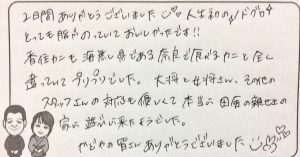 2日間ありがとうございました 人生初のノドグロ
とっても脂がのっていておいしかったです!!
香住カニも海無し県である奈良で食べるカニと全く
違っていてプリプリでした。大将と女将さん、その他の
スタッフさんの対応も優しくて本当に田舎の親せきの
家に遊びに来たようでした。
かどやの皆さんありがとうございました